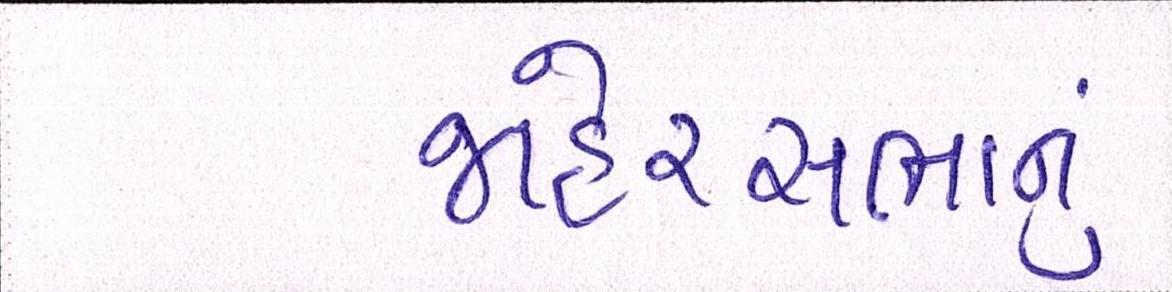 જાહેરસભાનું